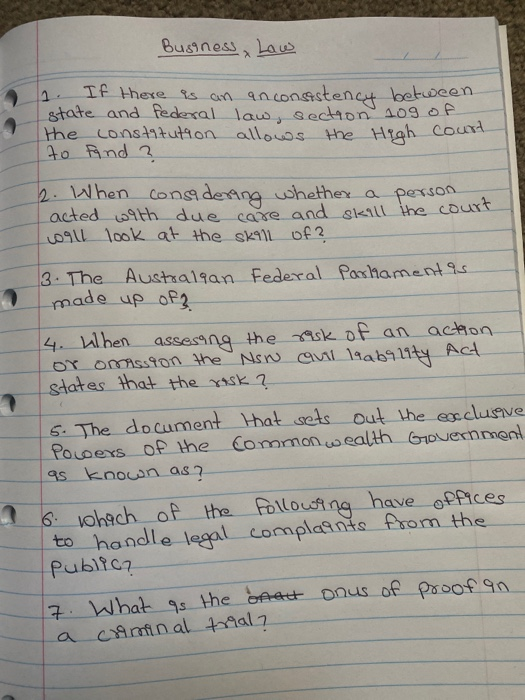 Business Law
1. If there is an inconsistency between
state and federal law, section 109 of
the constitution allows the High Court
to find?
2. When considering whether a person
acted with due care and skill the court
will look at the skill of?
3. The Australian Federal Parliament is
made up of?
4. When assesing the risk of an action
or omission the NSW civil liability Act
states that the risk?
5. The document that sets out the exclusive
Powers of the Commonwealth Government
is known as?
6. which of the following have offices
to handle legal complaints from the
public?
7. What is the onus of proof in
a criminal trial?